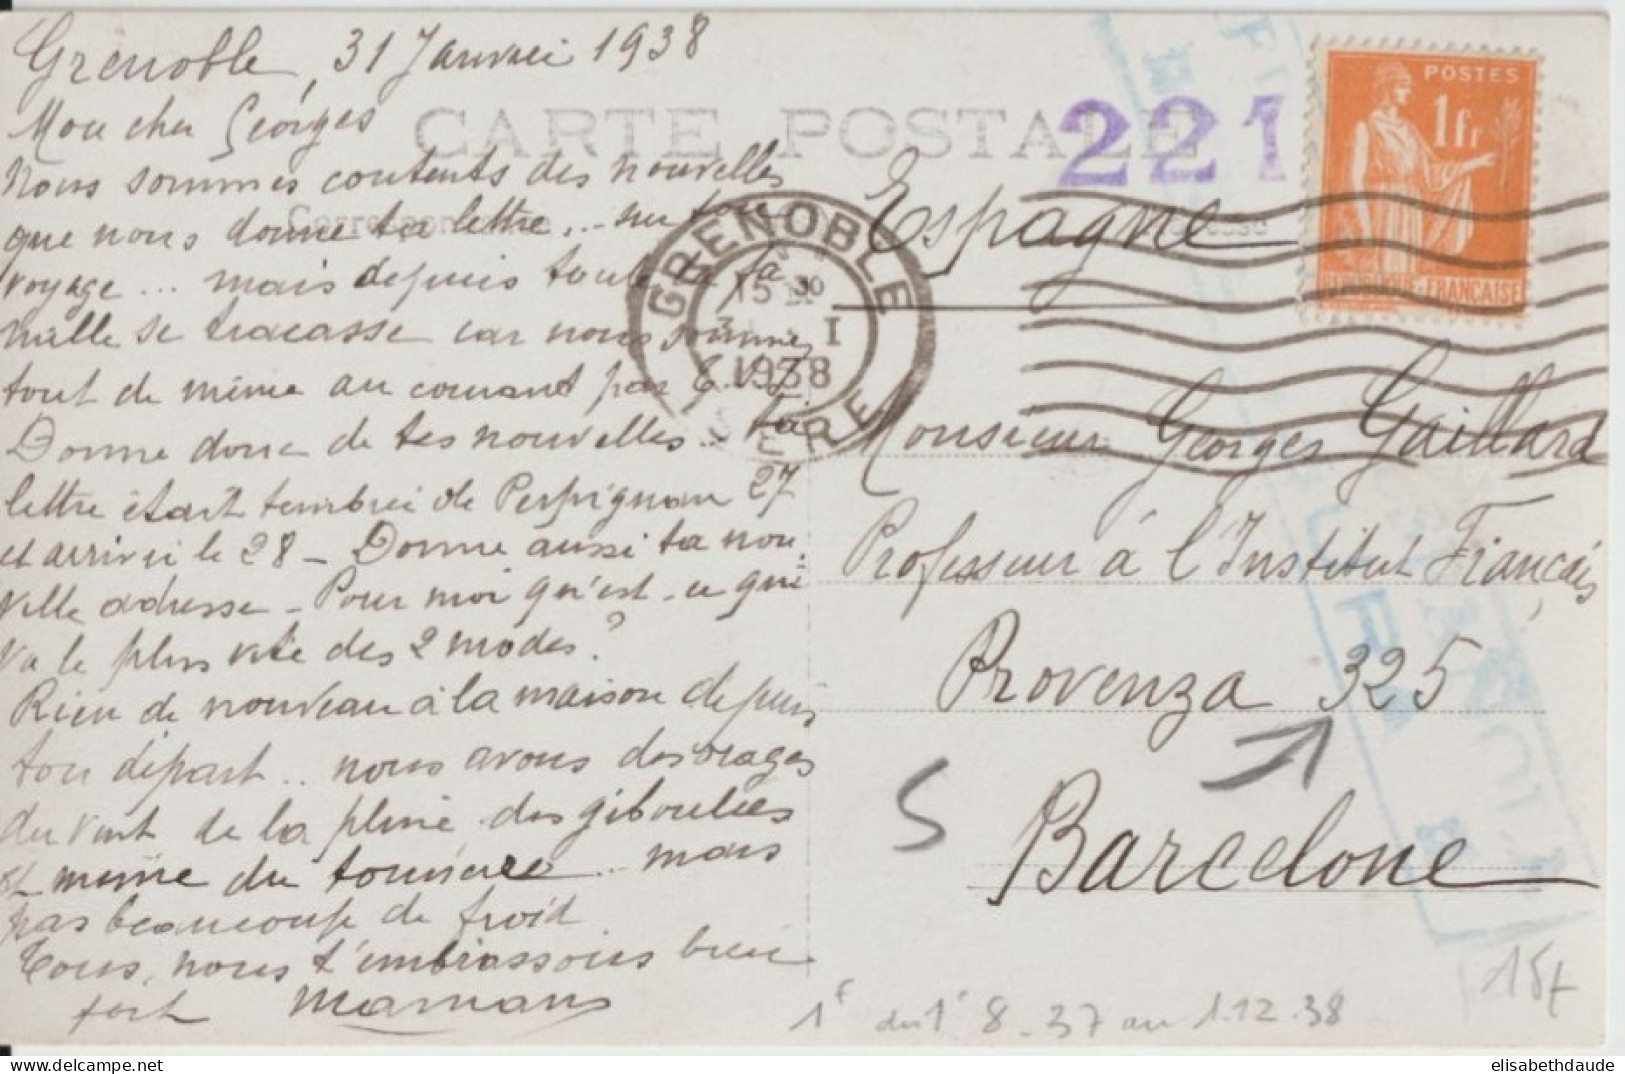 Grenoble, 31 Janvier 1938
Mon cher Georges
Nous sommes contents des nouvelles
que nous donne ta lettre... sur ton
voyage... mais depuis toute la fa
mille se tracasse car nous sommes
tout de même au courant par T.S.F
Donne donc de tes nouvelles.. ta
lettre était timbrée de Perpignan 27
et arrivée le 28 - Donne aussi ta nou
velle adresse - Pour moi qu'est-ce qui
va le plus vite des 2 modes?
Rien de nouveau à la maison depuis
ton départ.. nous avons des orages
du vent de la pluie des giboulées
et même du tonnerre.. mais
pas beaucoup de froid
Tous, nous t'embrassons bien
fort Maman
CARTE POSTALE
Correspondance
221
POSTES
1 fr
REPUBLIQUE-FRANÇAISE
GRENOBLE
15 30
I
1938
ISERE
Espagne
Monsieur Georges Gaillard
Professeur à l'Institut Français
Provenza 325
S
Barcelone
1f du 1r 8-37 au 1.12.38
15f
elisabethdaude